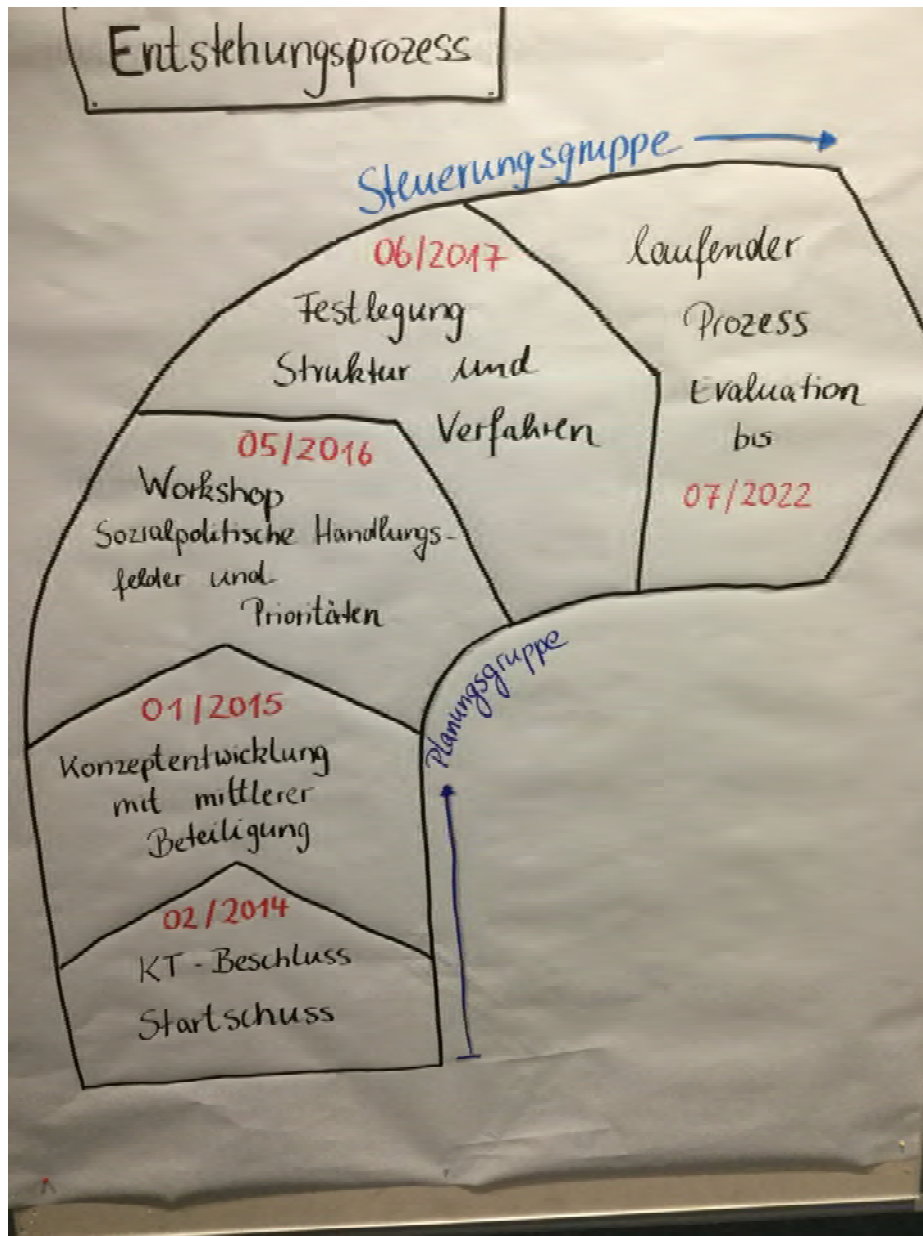 Entstehungsprozess
Steuerungsgruppe
06/2017
Festlegung
Struktur und
Verfahren
laufender
Prozess
Evaluation
bis
07/2022
05/2016
Workshop
Sozialpolitische Handlungs-
felder und
Prioritäten
Planungsgruppe
01/2015
Konzeptentwicklung
mit mittlerer
Beteiligung
02/2014
KT-Beschluss
Startschuss